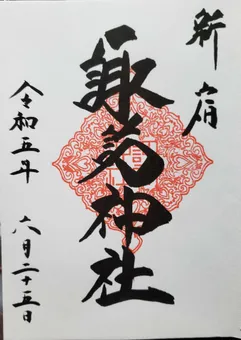 新宿
諏訪神社
令和五年
六月二十五日